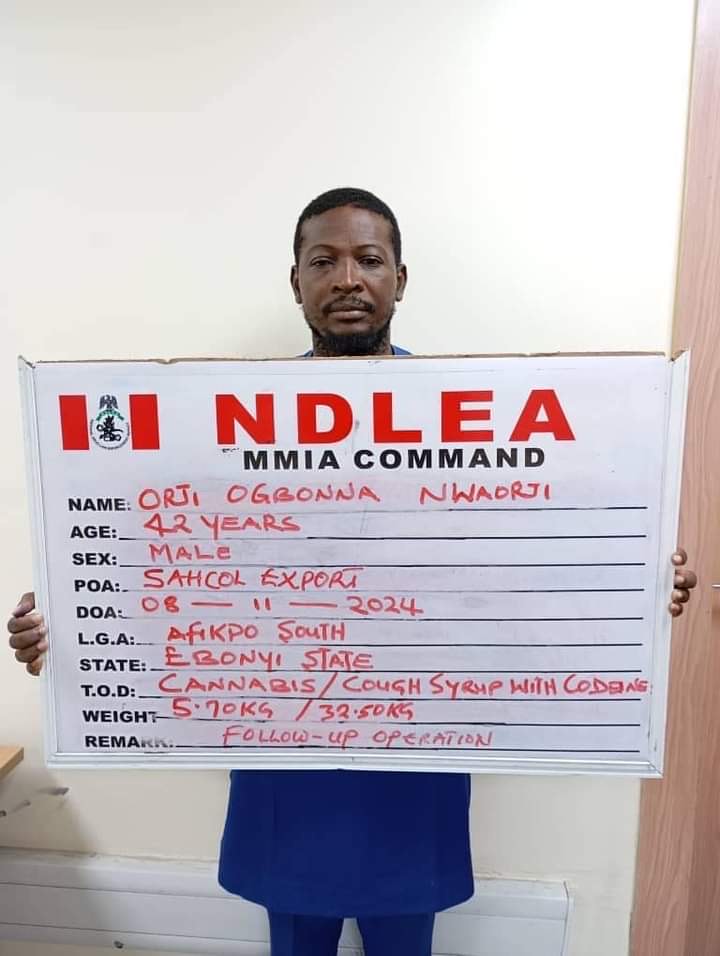 NDLEA
MMIA COMMAND
NAME: ORJI OGBONNA NWAORJI
AGE: 42 YEARS
SEX: MALE
POA: SAHCOL EXPORT
DOA: 08 — 11 — 2024
L.G.A: AFIKPO SOUTH
STATE: EBONYI STATE
T.O.D: CANNABIS/COUGH SYRUP WITH CODEINE
WEIGHT 5.70KG / 32.50KG
REMARK: FOLLOW-UP OPERATION